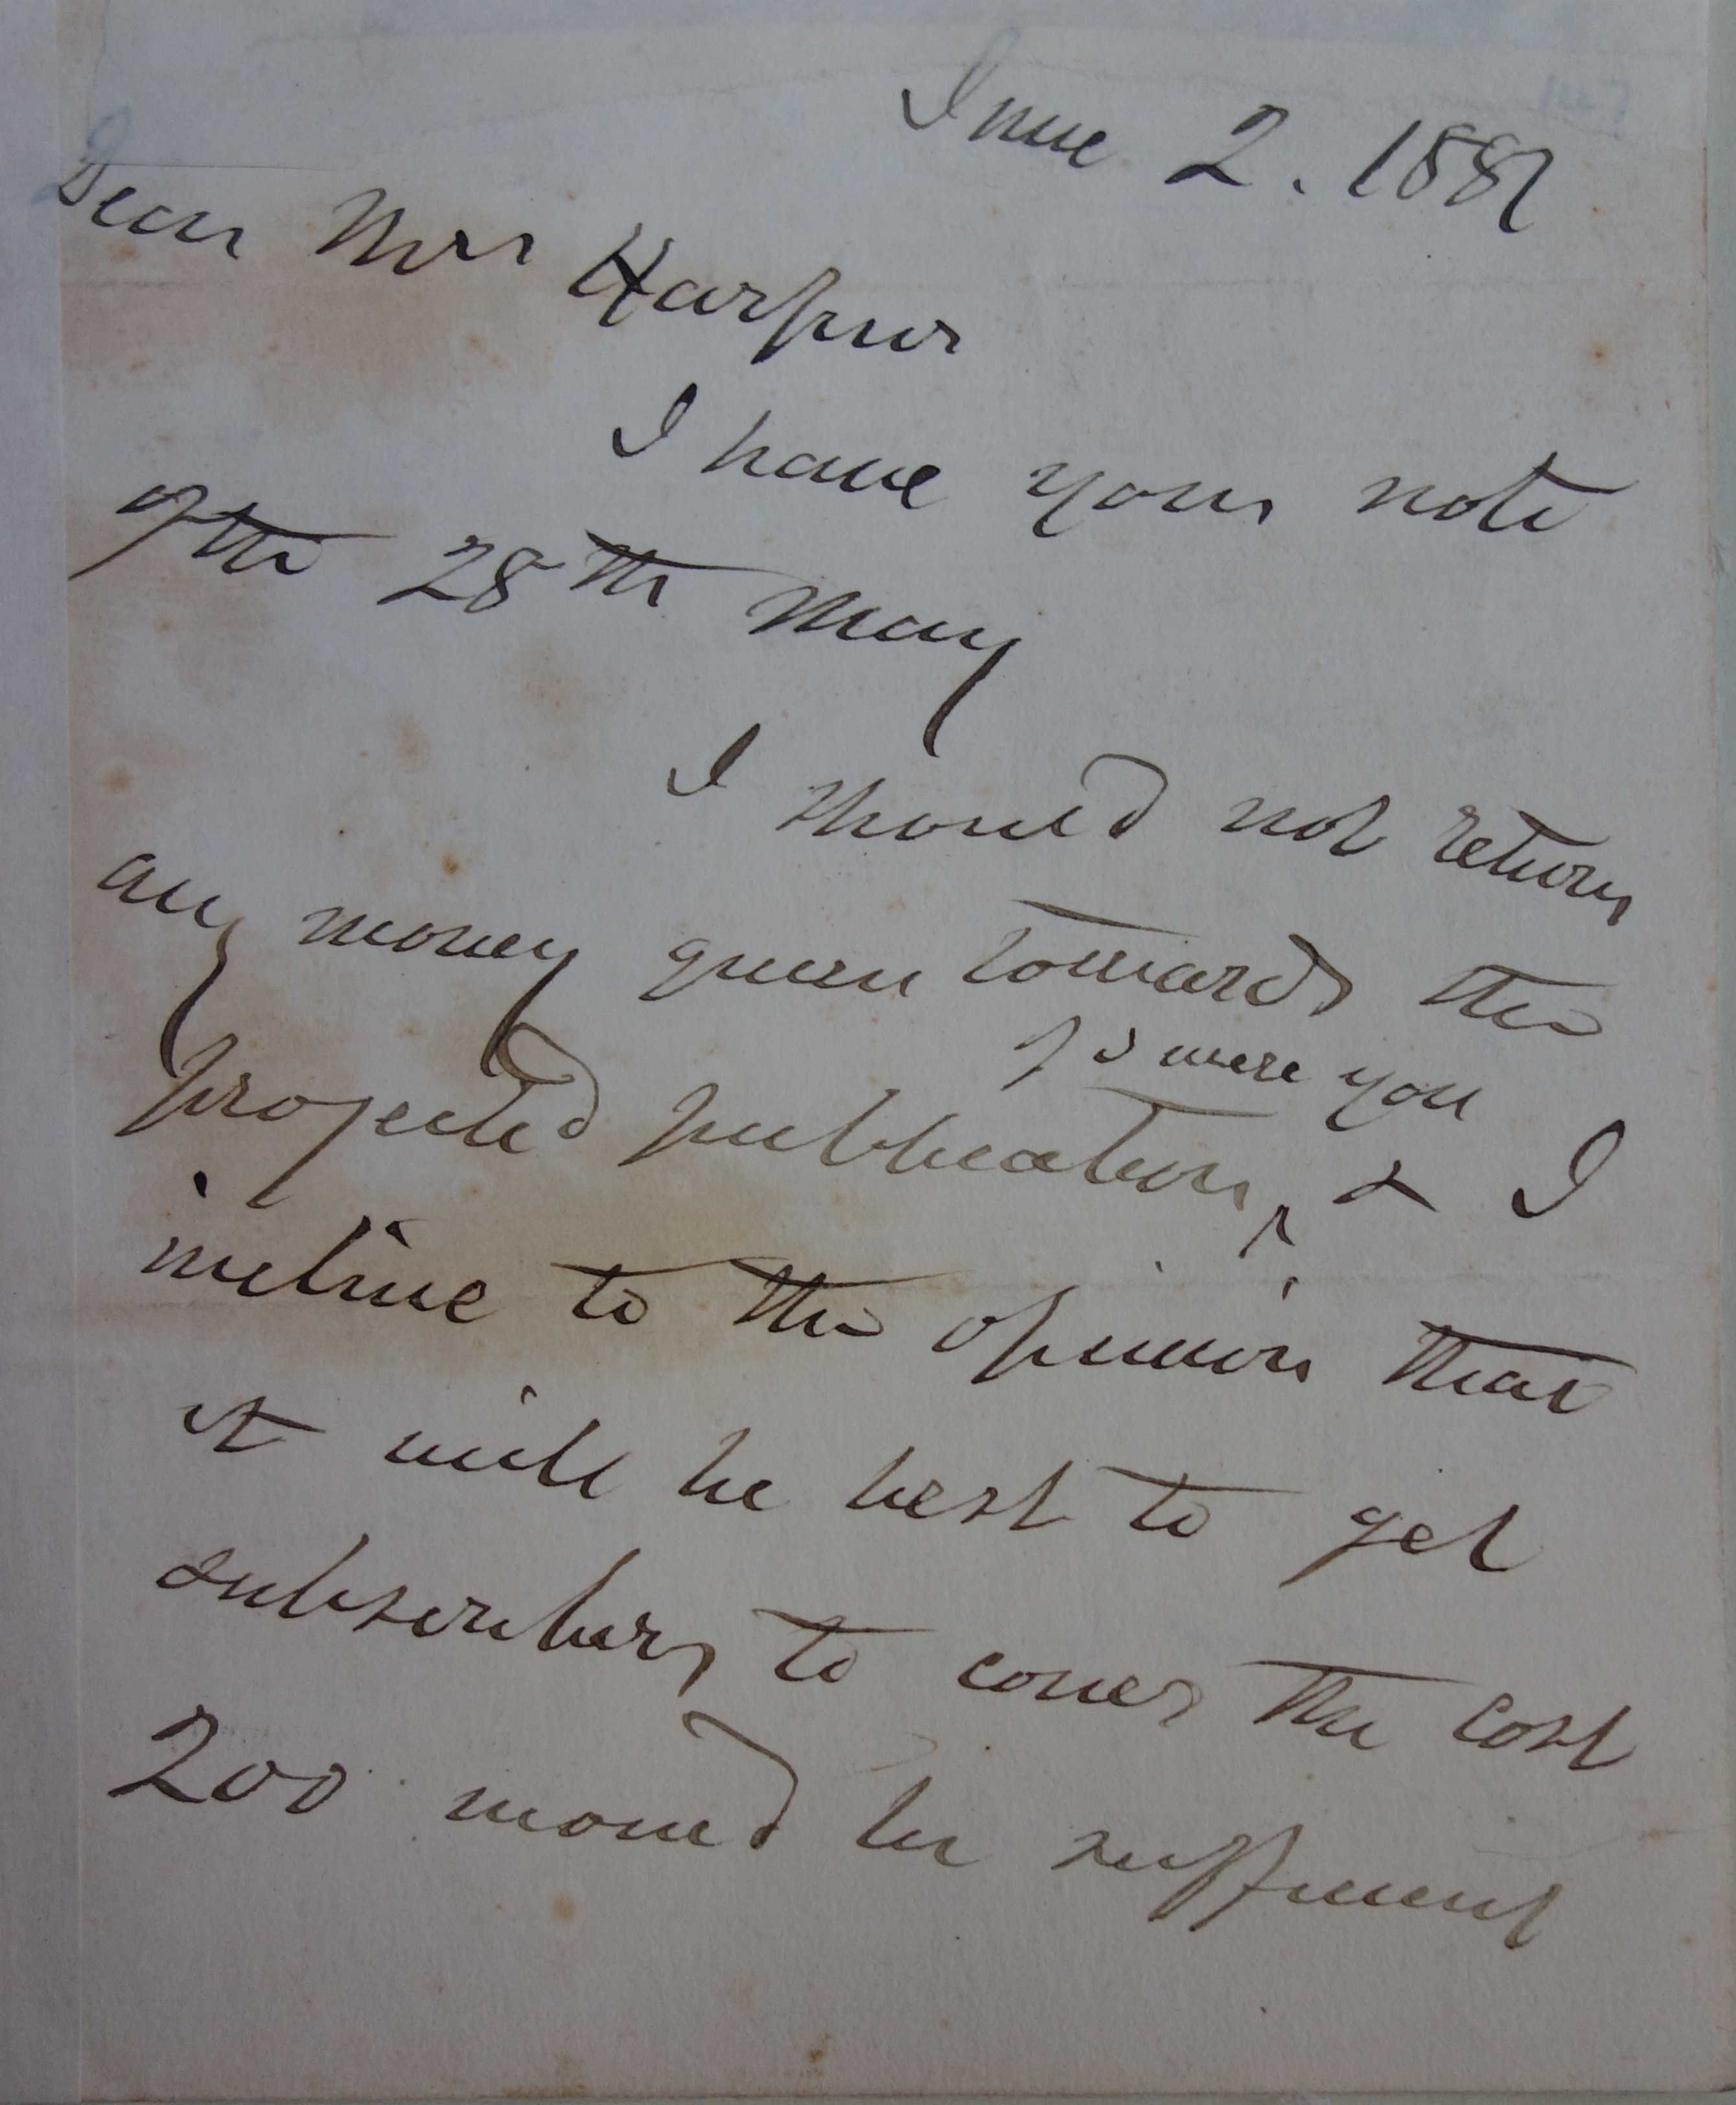 June 2. 1881
Dear Mrs Harpur
I have your note
of the 28th May
I should not return
any money given towards the
if I were you
projected publication, & I
incline to the opinion that
it will be best to get
subscribers to cover the cost
200 would be sufficient